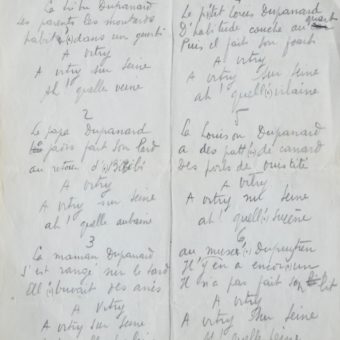 La tribu Dupanard
les parents les moutards
habit' (e) dans un
A Vitry
A Vitry sur Seine
Ah ! quelle veine
2
Le papa Dupanard
parois fait son lard
au retour d'
A Vitry
A Vitry sur Seine
ah ! quelle aubaine
3
La maman Dupanard
S'est rangé sur le tard
Ell' buvait des anis
A Vitry
A Vitry sur Seine
Le p'tit Louis Dupanard
D'habitude couche au
Puis il fait son
A Vitry
A Vitry sur Seine
ah ! quell' (e) vilaine
5
La Louison Dupanard
a des patt' (e) de canard
Des poils de ouistiti
A Vitry
A Vitry sur Seine
ah ! quell' (e)
6
au musée (e) Dupuytren
Il y en a un
Il n'a pas fait son lit
A Vitry
A Vitry sur Seine